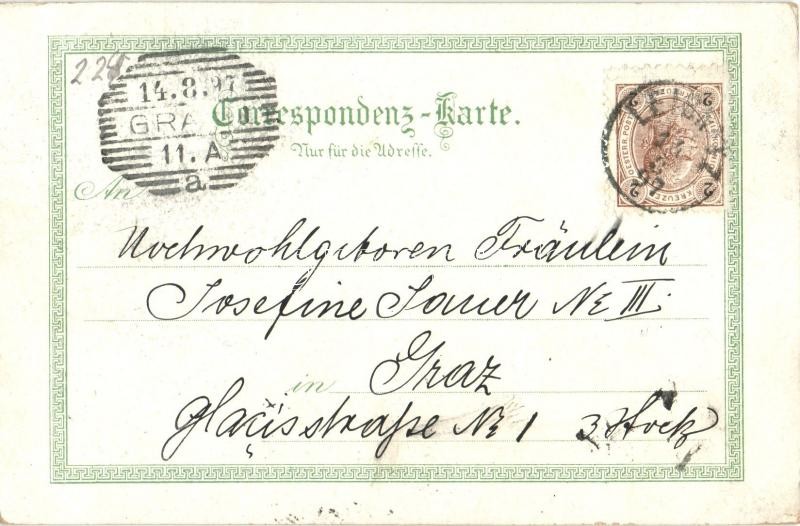 224
14.8.97
GRA
11.A
a
Correspondenz-Karte.
Nur für die Adresse.
2 2
KREUZER
2 KREUZER 2
An
Hochwohlgeboren Fräulein
Josefine Sauer № III.
in Graz
Glacisstraße № 1 3 Stock